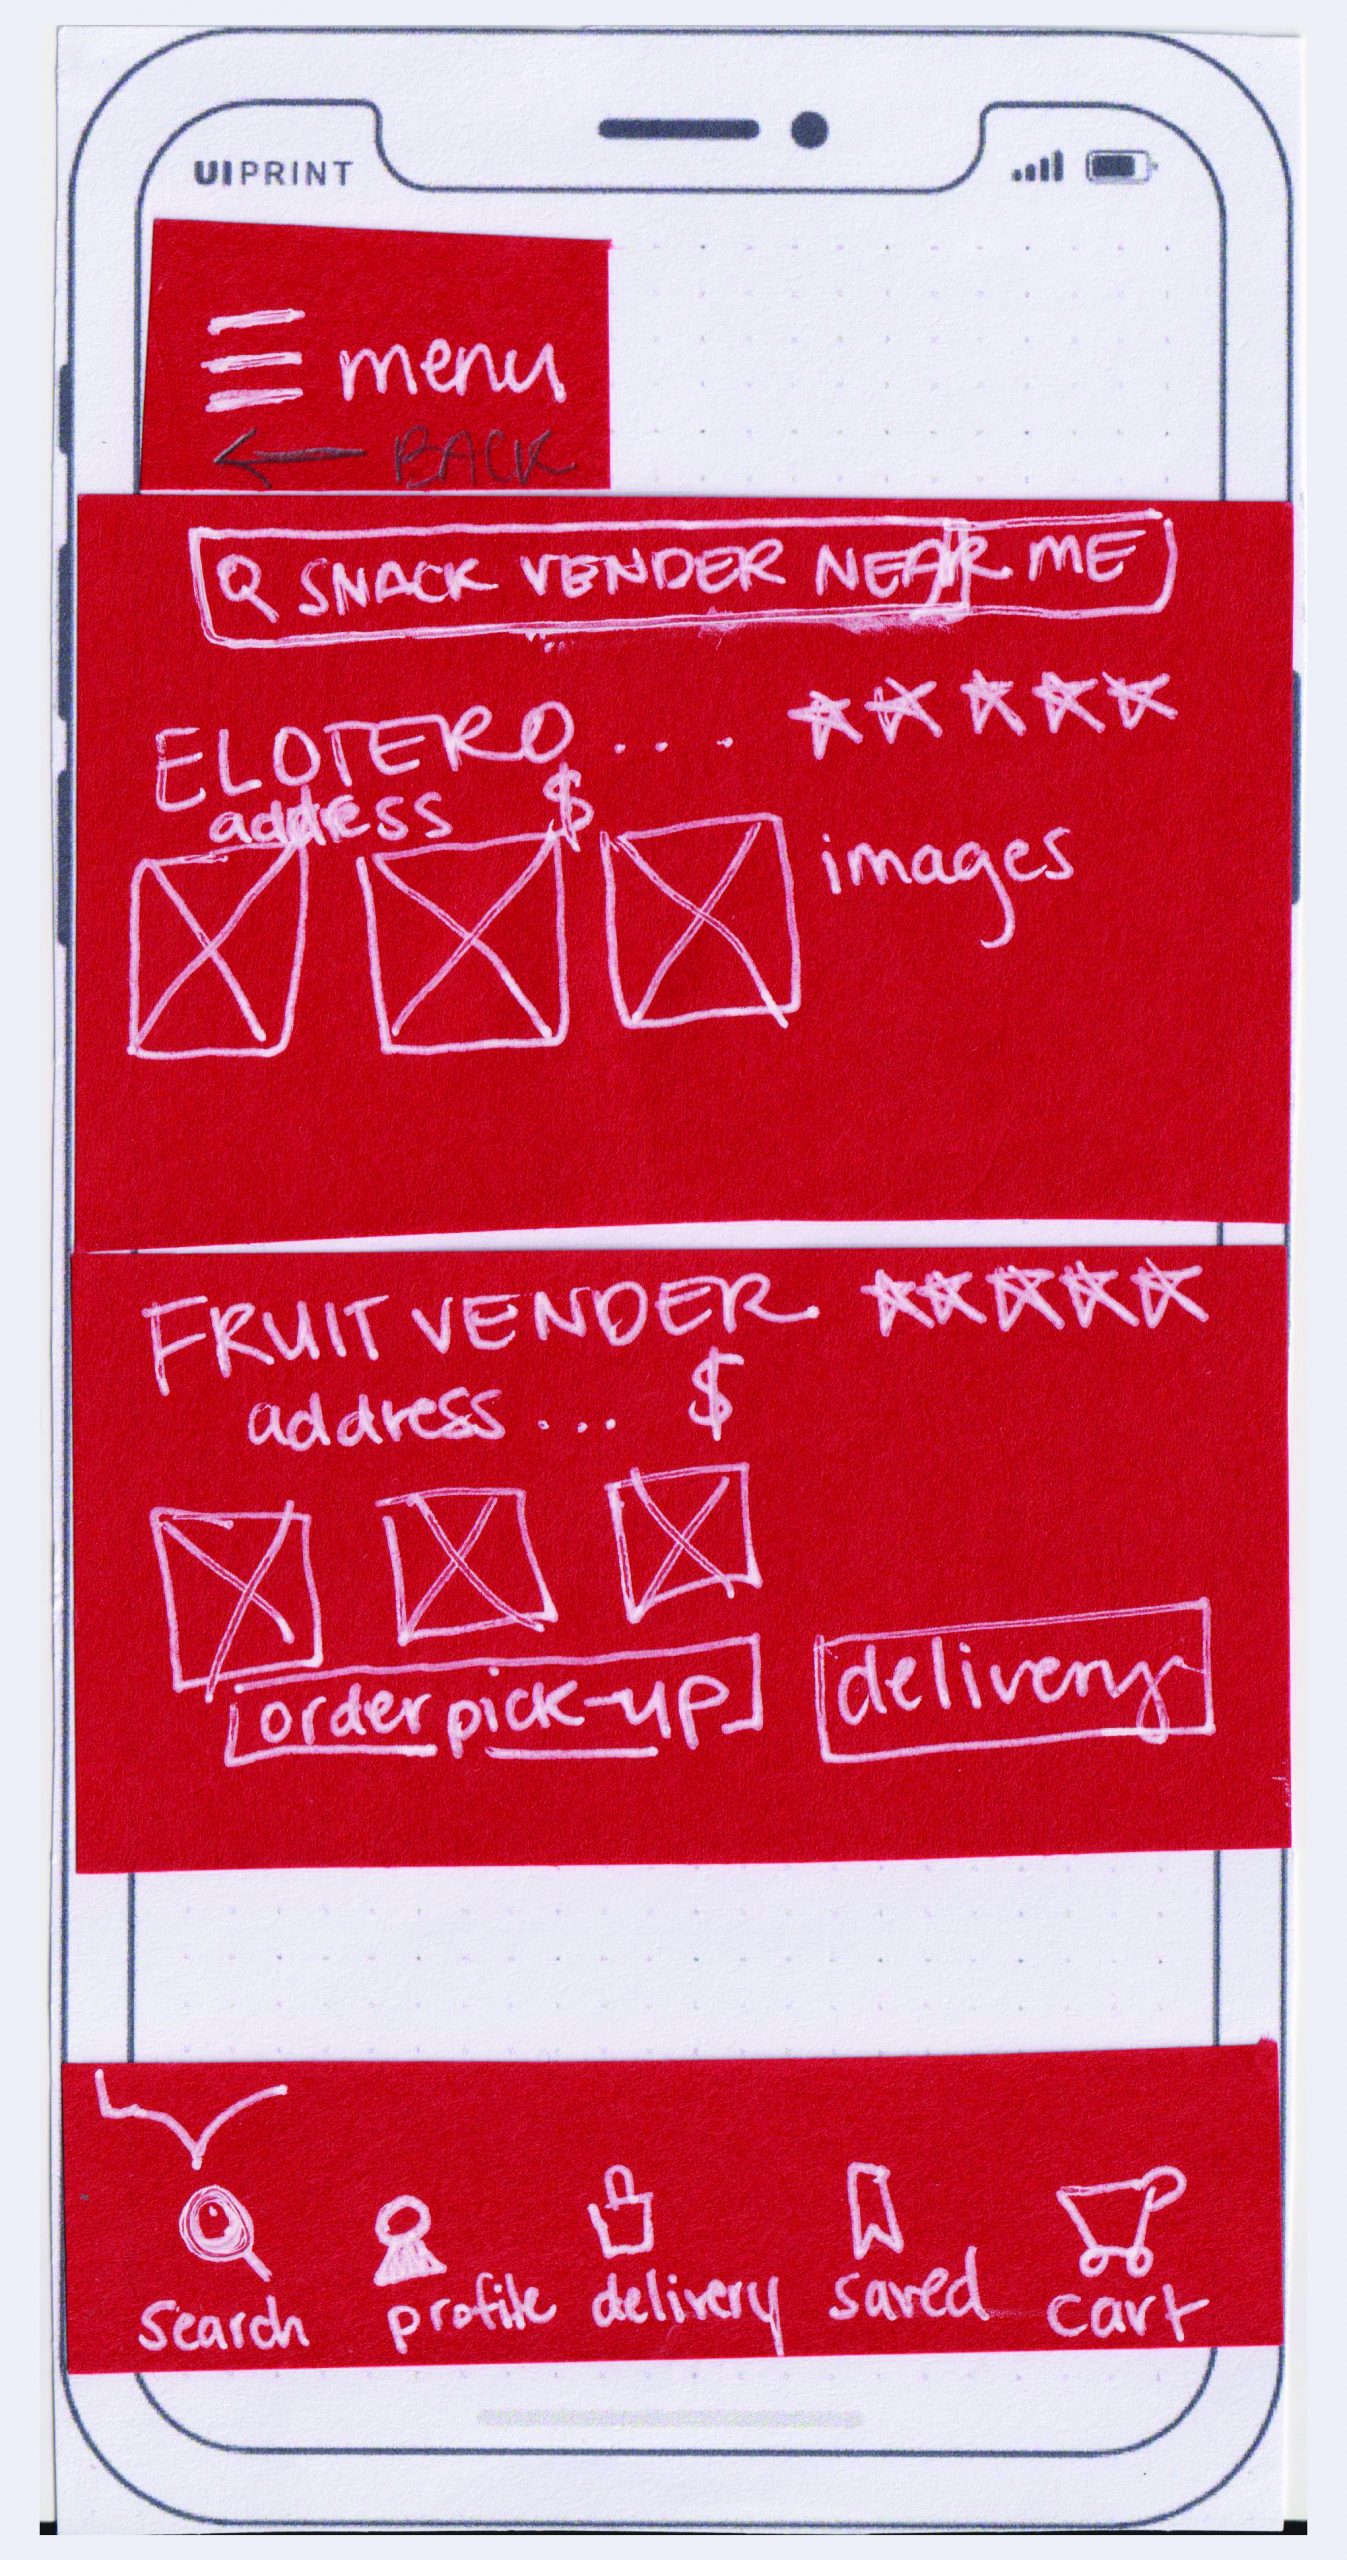 UIPRINT
menu
← BACK
SNACK VENDER NEAR ME
ELOTERO ....
address $
images
FRUIT VENDER
address ... $
order pick-up delivery
search profile delivery saved cart